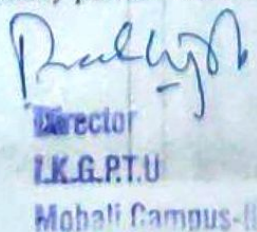 Director
I.K.G.P.T.U
Mohali Campus-II